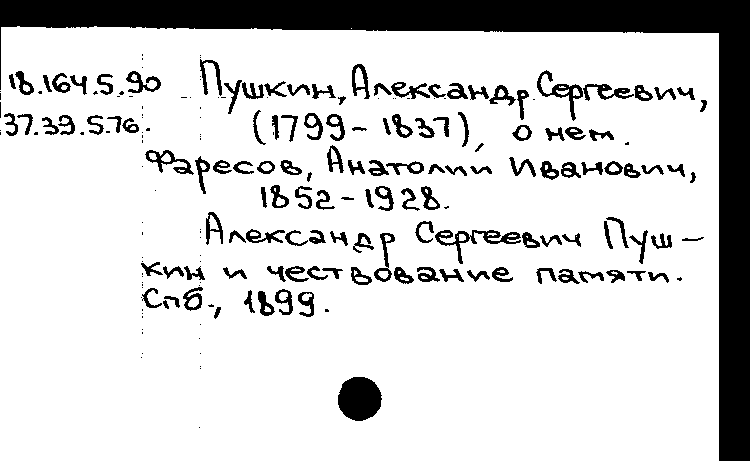 18.164.5.90 Пушкин, Александр Сергеевич,
37.39.5.76. (1799-1837), о нем.
Фаресов, Анатолий Иванович,
1852-1928.
Александр Сергеевич Пуш-
кин и чествование памяти.
Спб., 1899.